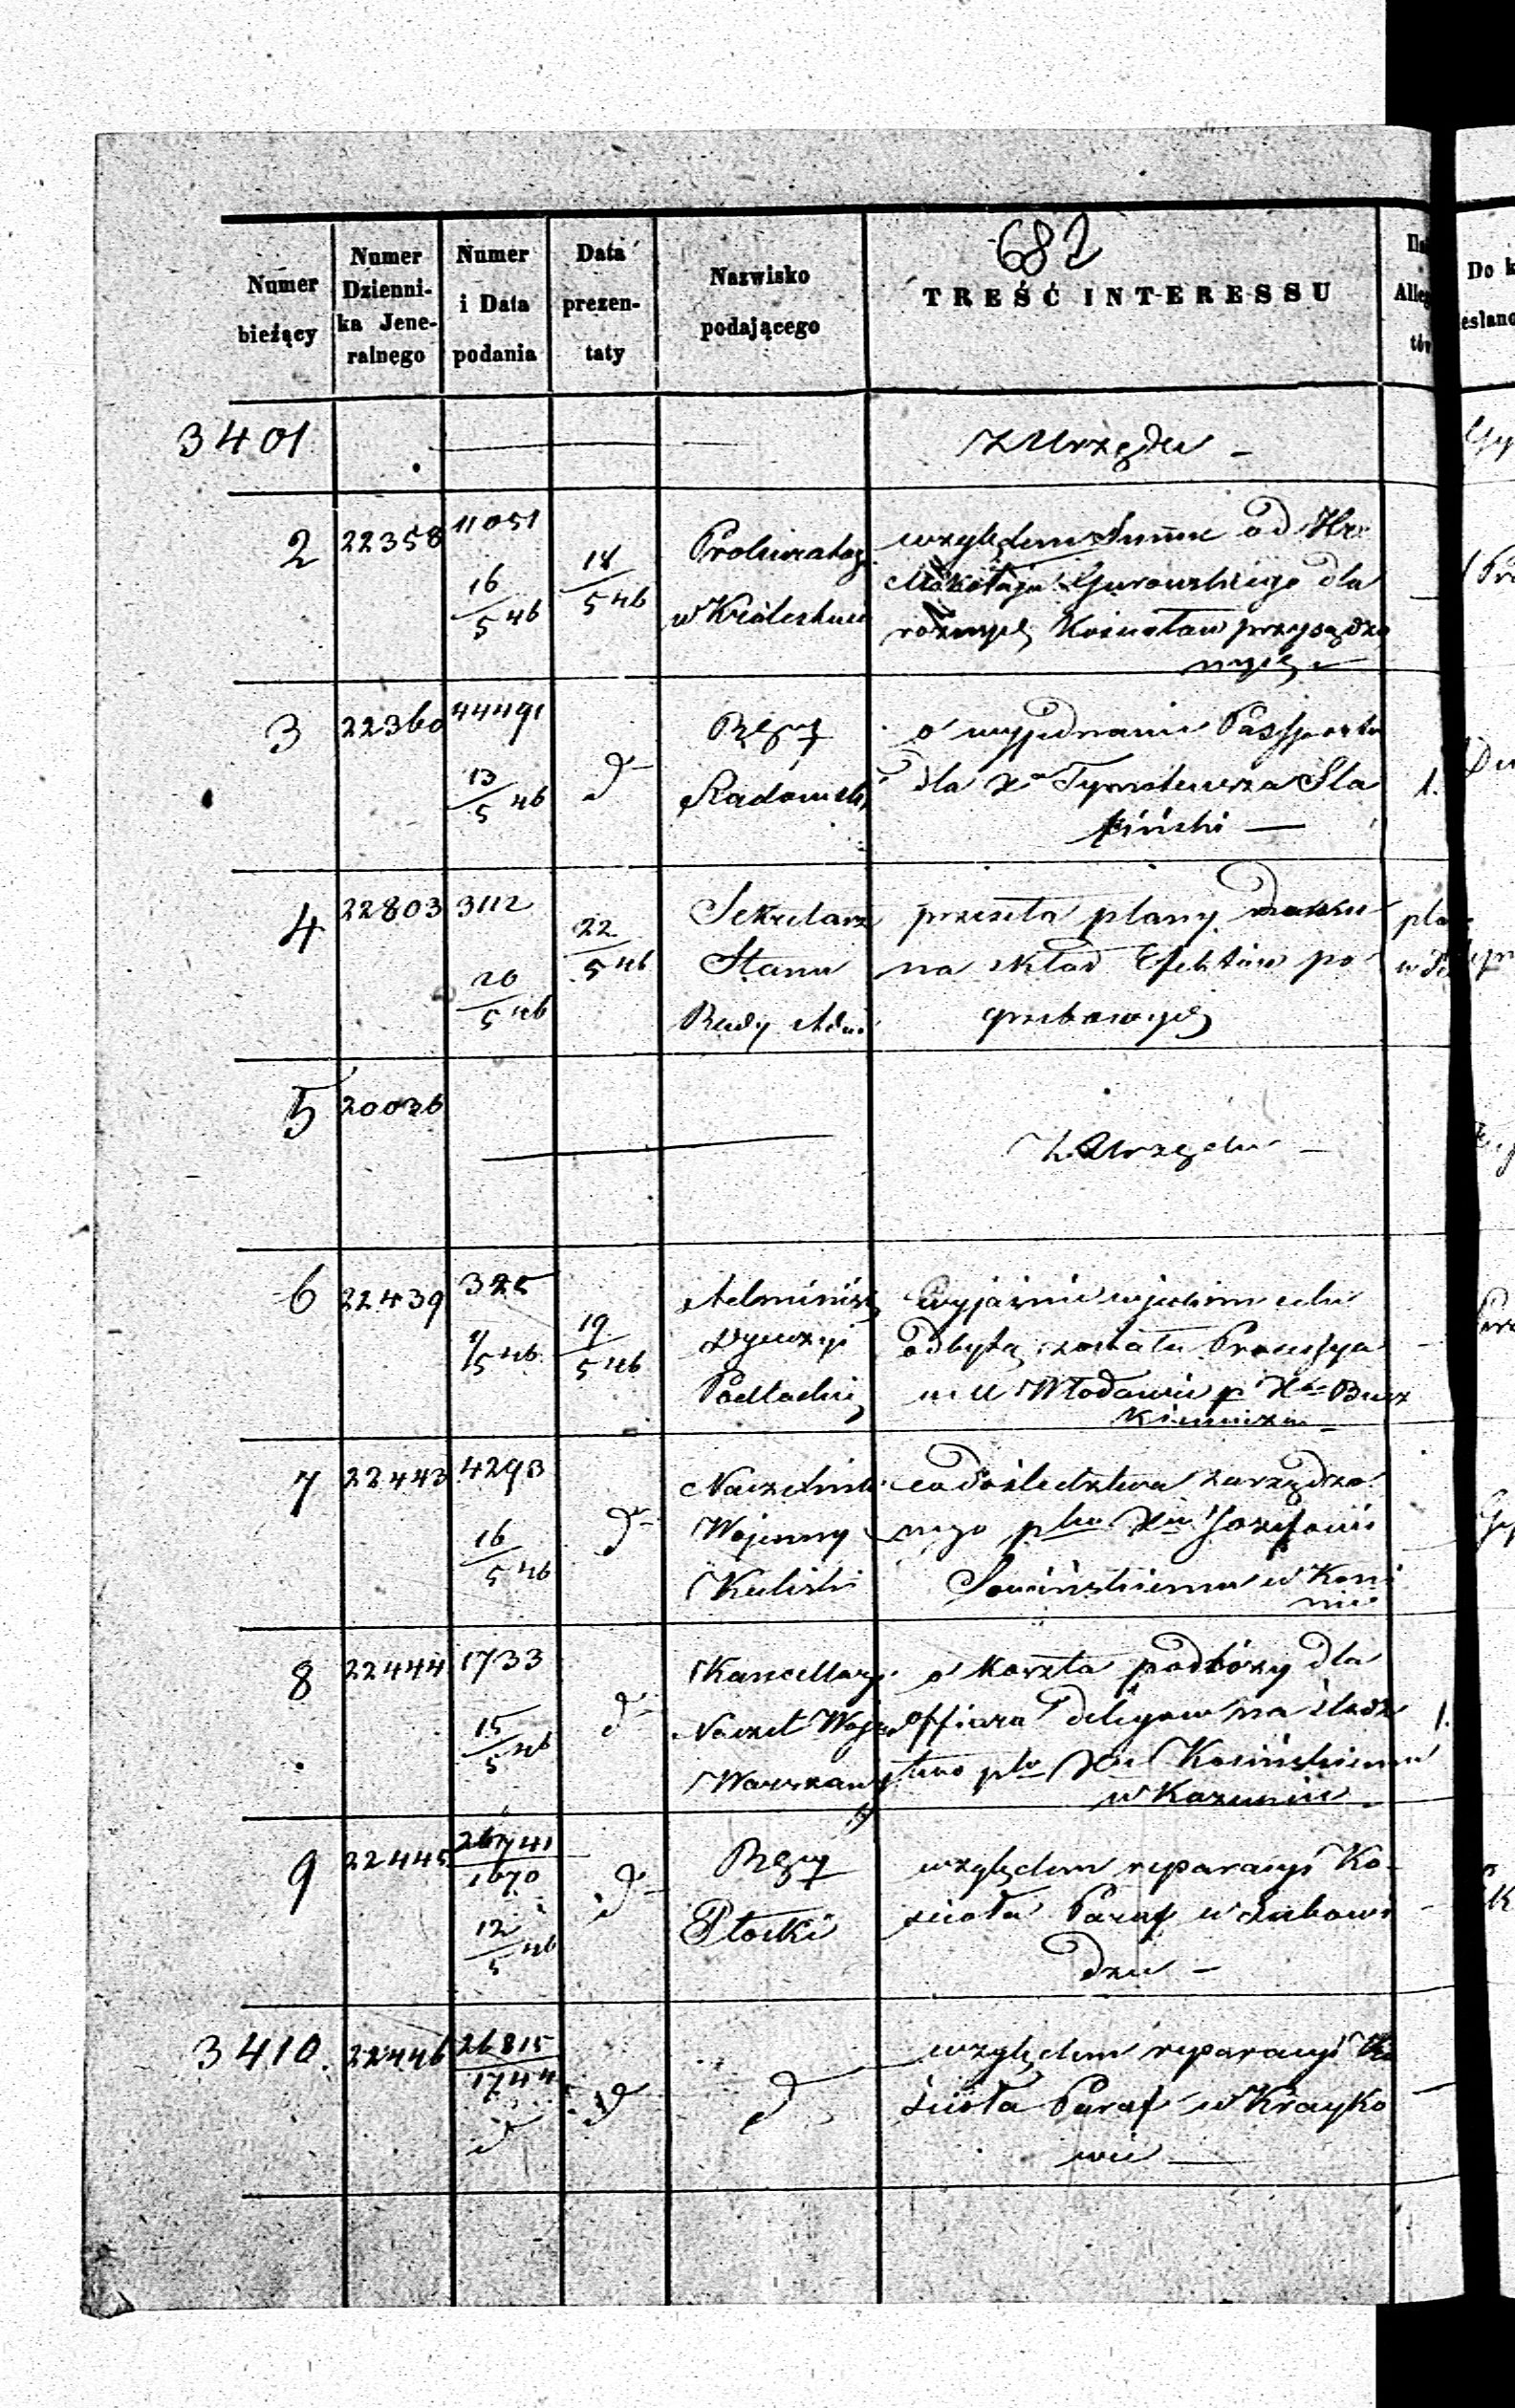 682
Numer bieżący | Numer Dziennika Jeneralnego | Numer i Data podania | Data prezentaty | Nazwisko podającego | TREŚĆ INTERESSU
3401 | Z Urzędu –
2 | 22358 | 11051 16/5 46 | 18/5 46 | Prokurator
w Królestwie
względem Summ od Hr.
Mikołaja Gurowskiego dla
rożnych Kościołów przysądzo
nych –
3 | 22360 | 44491 13/5 46 | d° | Rząd
Radomski
o wyjednanie Passportu
dla Xa Tymoteusza Sla
| 1.
4 | 22803 | 3112 20/5 46 | 22/5 46 | Sekretarz
Stanu
Rady Adm
przesyła plany domku
na skład Efektów po
grzebowych
5 | 20026 | Z Urzędu –
6 | 22439 | 325 9/5 46 | 19/5 46 | Administr
Dyecezyi
Podlaskiej
wyjaśnia w jakim celu
odbytą została Processya
w Włodawie p. Xa
7 | 22443 | 4293 16/5 46 | d° | Naczelnik
Wojenny
Kaliski
co do śledztwa zarządzo
nego pko Xu Jozefowi
Sowińskiemu w Koni
nie
8 | 22444 | 1733 15/5 46 | d° | Kancellarya
Naczel Wojen
Warszaws
o koszta podróży dla
officera delegow na śledz
two pko Xu Kosińskiemu
w Kazuniu | 1.
9 | 22445 | 26741/1670 12/5 46 | d° | Rząd
Płocki
względem reparacyi Ko-
ścioła Paraf w Lubowi
dzu –
3410. | 22446 | 26815/1744 d° | d° | d°
względem reparacyi Ko
ścioła Paraf w Krayko
wie –